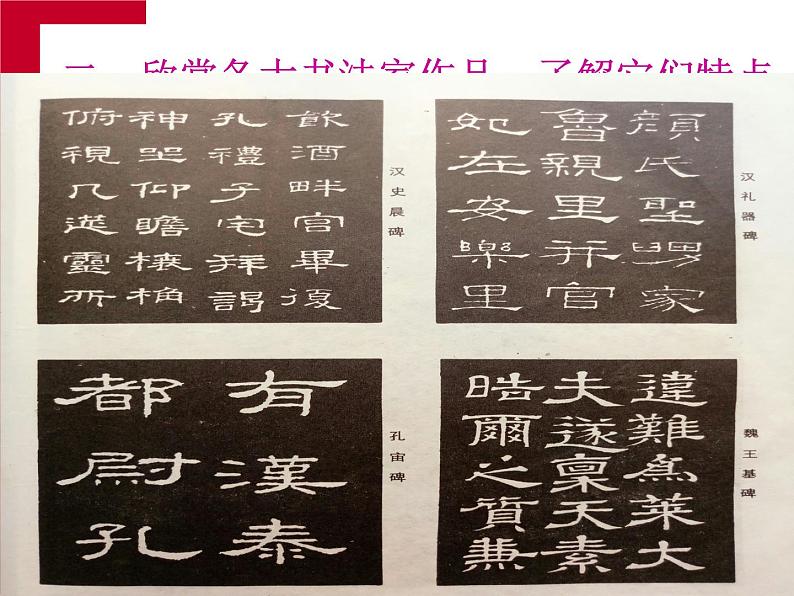 欣赏各大书法家作品 了解它们特点
飲酒畔宫畢復
孔禮子宅拜謁
神坐仰瞻榱桷
俯視几筵靈所
汉史晨碑
顏氏聖舅家
魯親里并官
妃在安樂里
汉礼器碑
有漢泰
都尉孔
孔宙碑
違難為萊大
夫遂稟天素
晧爾之質兼
魏王基碑